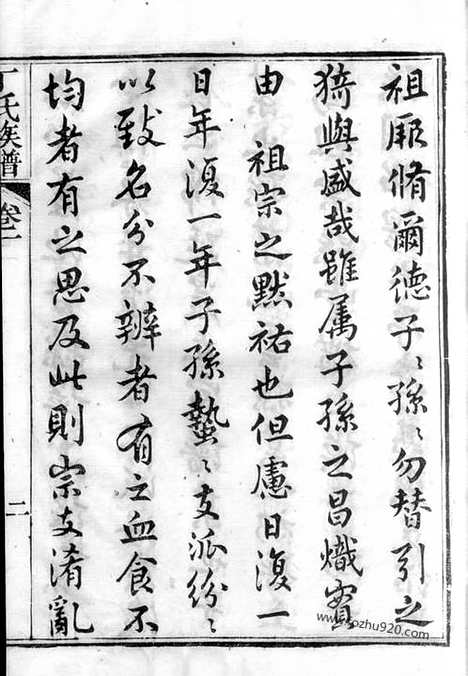 祖聿脩爾德子〻孫〻勿替引之
猗與盛哉雖属子孫之昌熾實
由 祖宗之默祐也但慮日復一
日年復一年子孫蟄〻支派紛〻
以致名分不辨者有之血食不
均者有之思及此則宗支淆亂
丁氏族譜
卷一
二
www.kozhu920.com